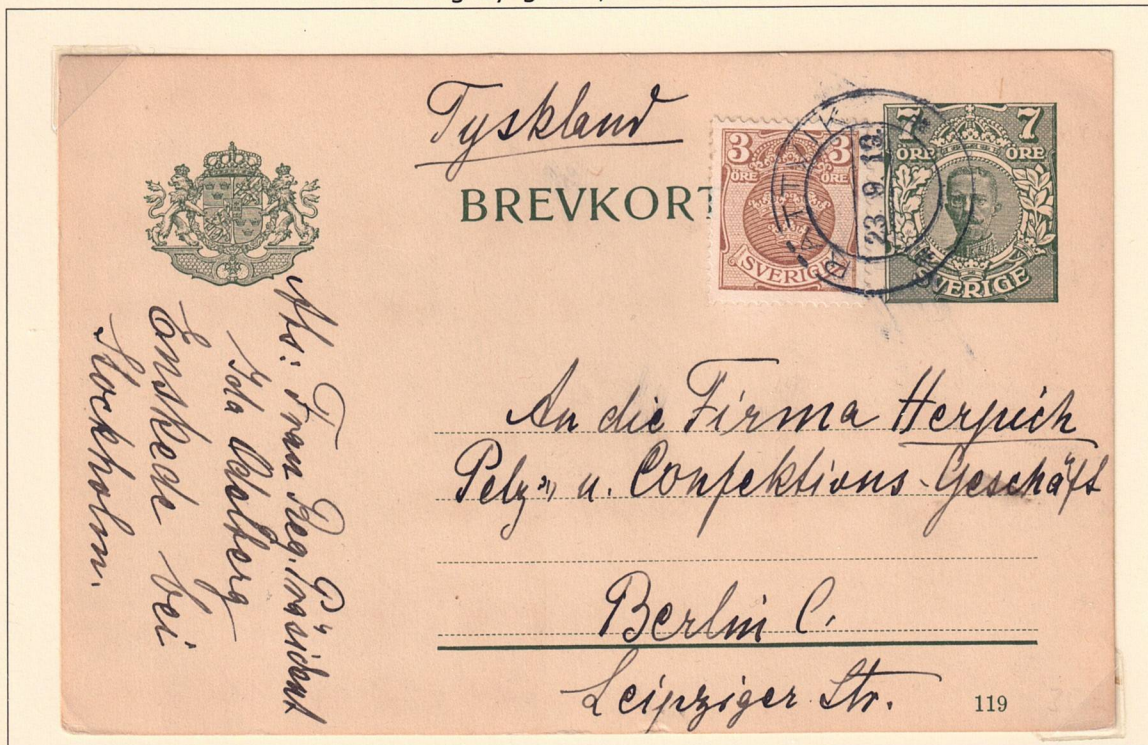 Tyskland
BREVKORT
3 3
ÖRE ÖRE
SVERIGE
RÄTTVIK
23. 9. 19.
7 7
ÖRE ÖRE
SVERIGE
An die Firma Herpich
Pelz- u. Confektions-Geschäft
Berlin C.
Leipziger Str.
119
Abs: Frau Reg. Präsident
Ida
Enskede bei
Stockholm.